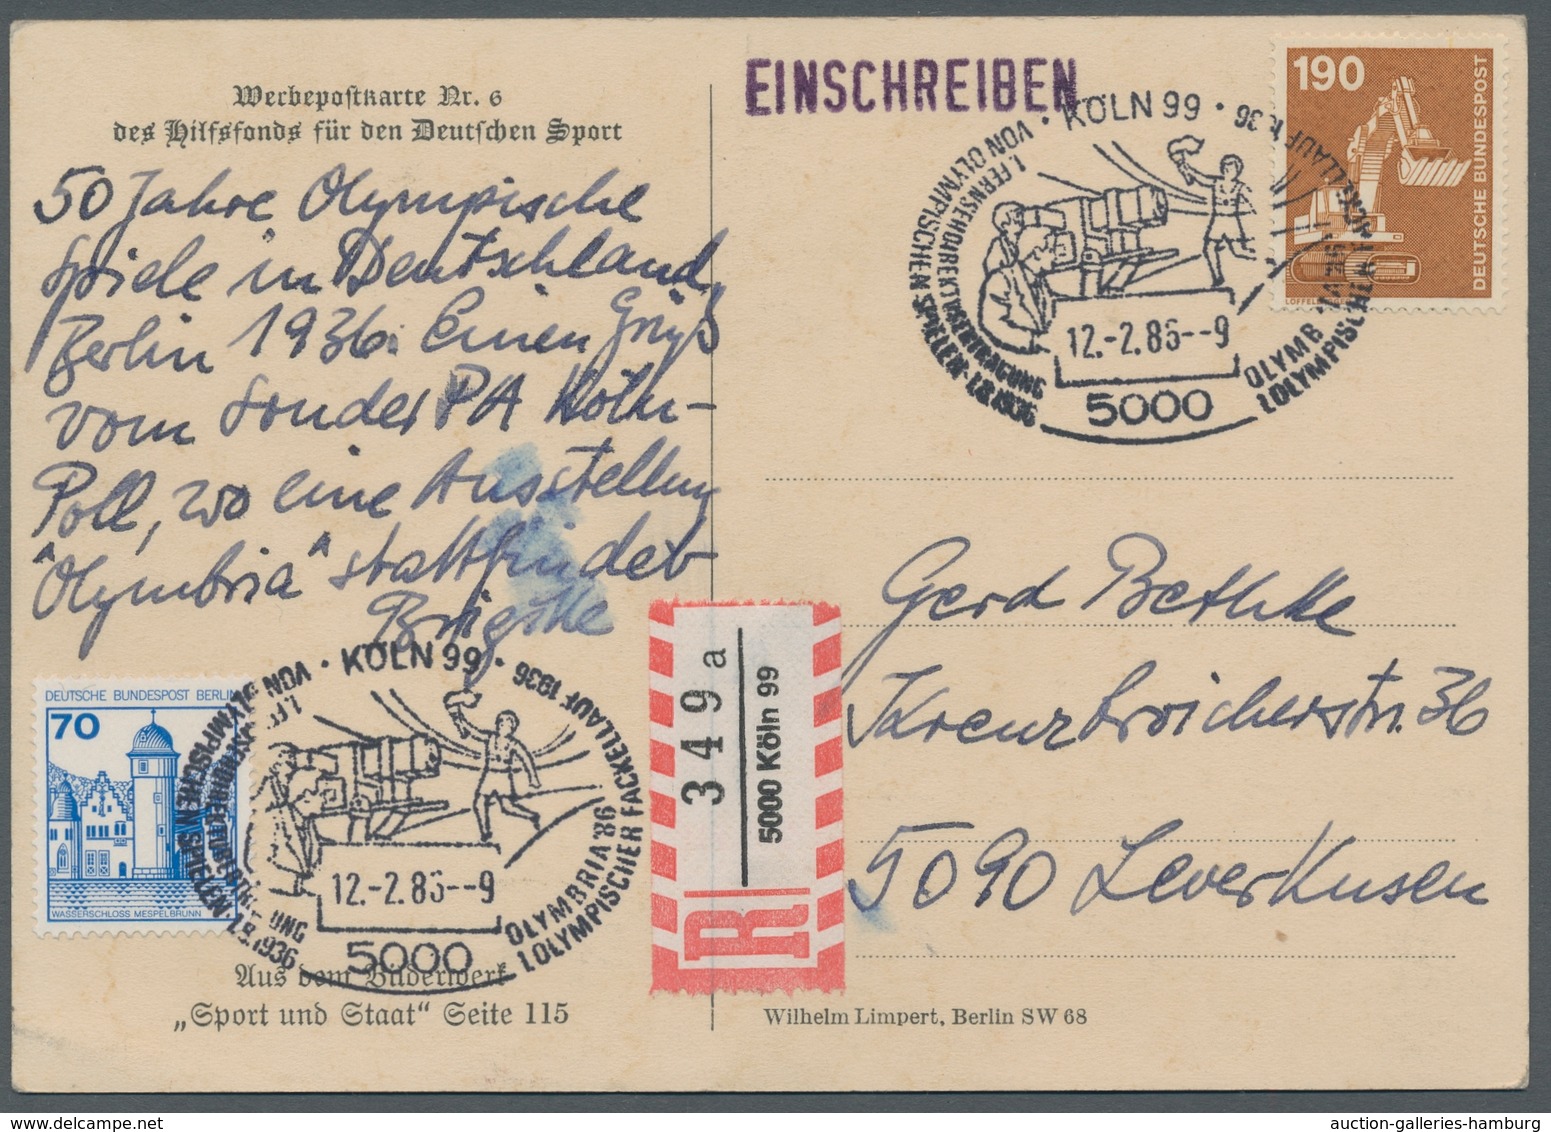 Werbepostkarte Nr. 6
des Hilfsfonds für den Deutschen Sport
50 Jahre Olympische
Spiele in Deutschland,
Berlin 1936. Einen Gruß
vom Sonder PA Köln-
Poll, wo eine Ausstellung
"Olymbria" stattfindet
Brigitte
DEUTSCHE BUNDESPOST BERLIN
70
WASSERSCHLOSS MESPELBRUNN
· KÖLN 99 ·
1. OLYMPISCHER FACKELLAUF 1936
OLYMBRIA '86
VON OLYMPISCHEN SPIELEN
12.-2.86--9
5000
Aus dem Bilderwerk
„Sport und Staat“ Seite 115
EINSCHREIBEN
190
DEUTSCHE BUNDESPOST
· KÖLN 99 ·
1. FERNSEHDIREKTÜBERTRAGUNG
VON OLYMPISCHEN SPIELEN · 1.8.1936
12.-2.86--9
5000
R
349 a
5000 Köln 99
Gerd Bethke
Kreuzbroicherstr. 36
5090 Leverkusen
Wilhelm Limpert, Berlin SW 68
auction-galleries-hamburg.com